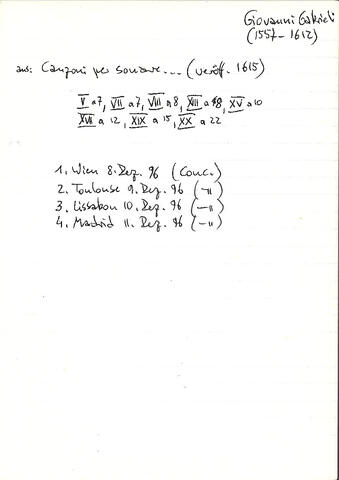 Giovanni Gabrieli
(1557-1612)
aus: Canzoni per sonare... (veröff. 1615)
V a 7, VII a 7, VIII a 8, XIII a 8, XV a 10
XVII a 12, XIX a 15, XX a 22
1. Wien 8. Dez. 96 (Conc.)
2. Toulouse 9. Dez. 96 (-"-)
3. Lissabon 10. Dez. 96 (-"-)
4. Madrid 11. Dez. 96 (-"-)